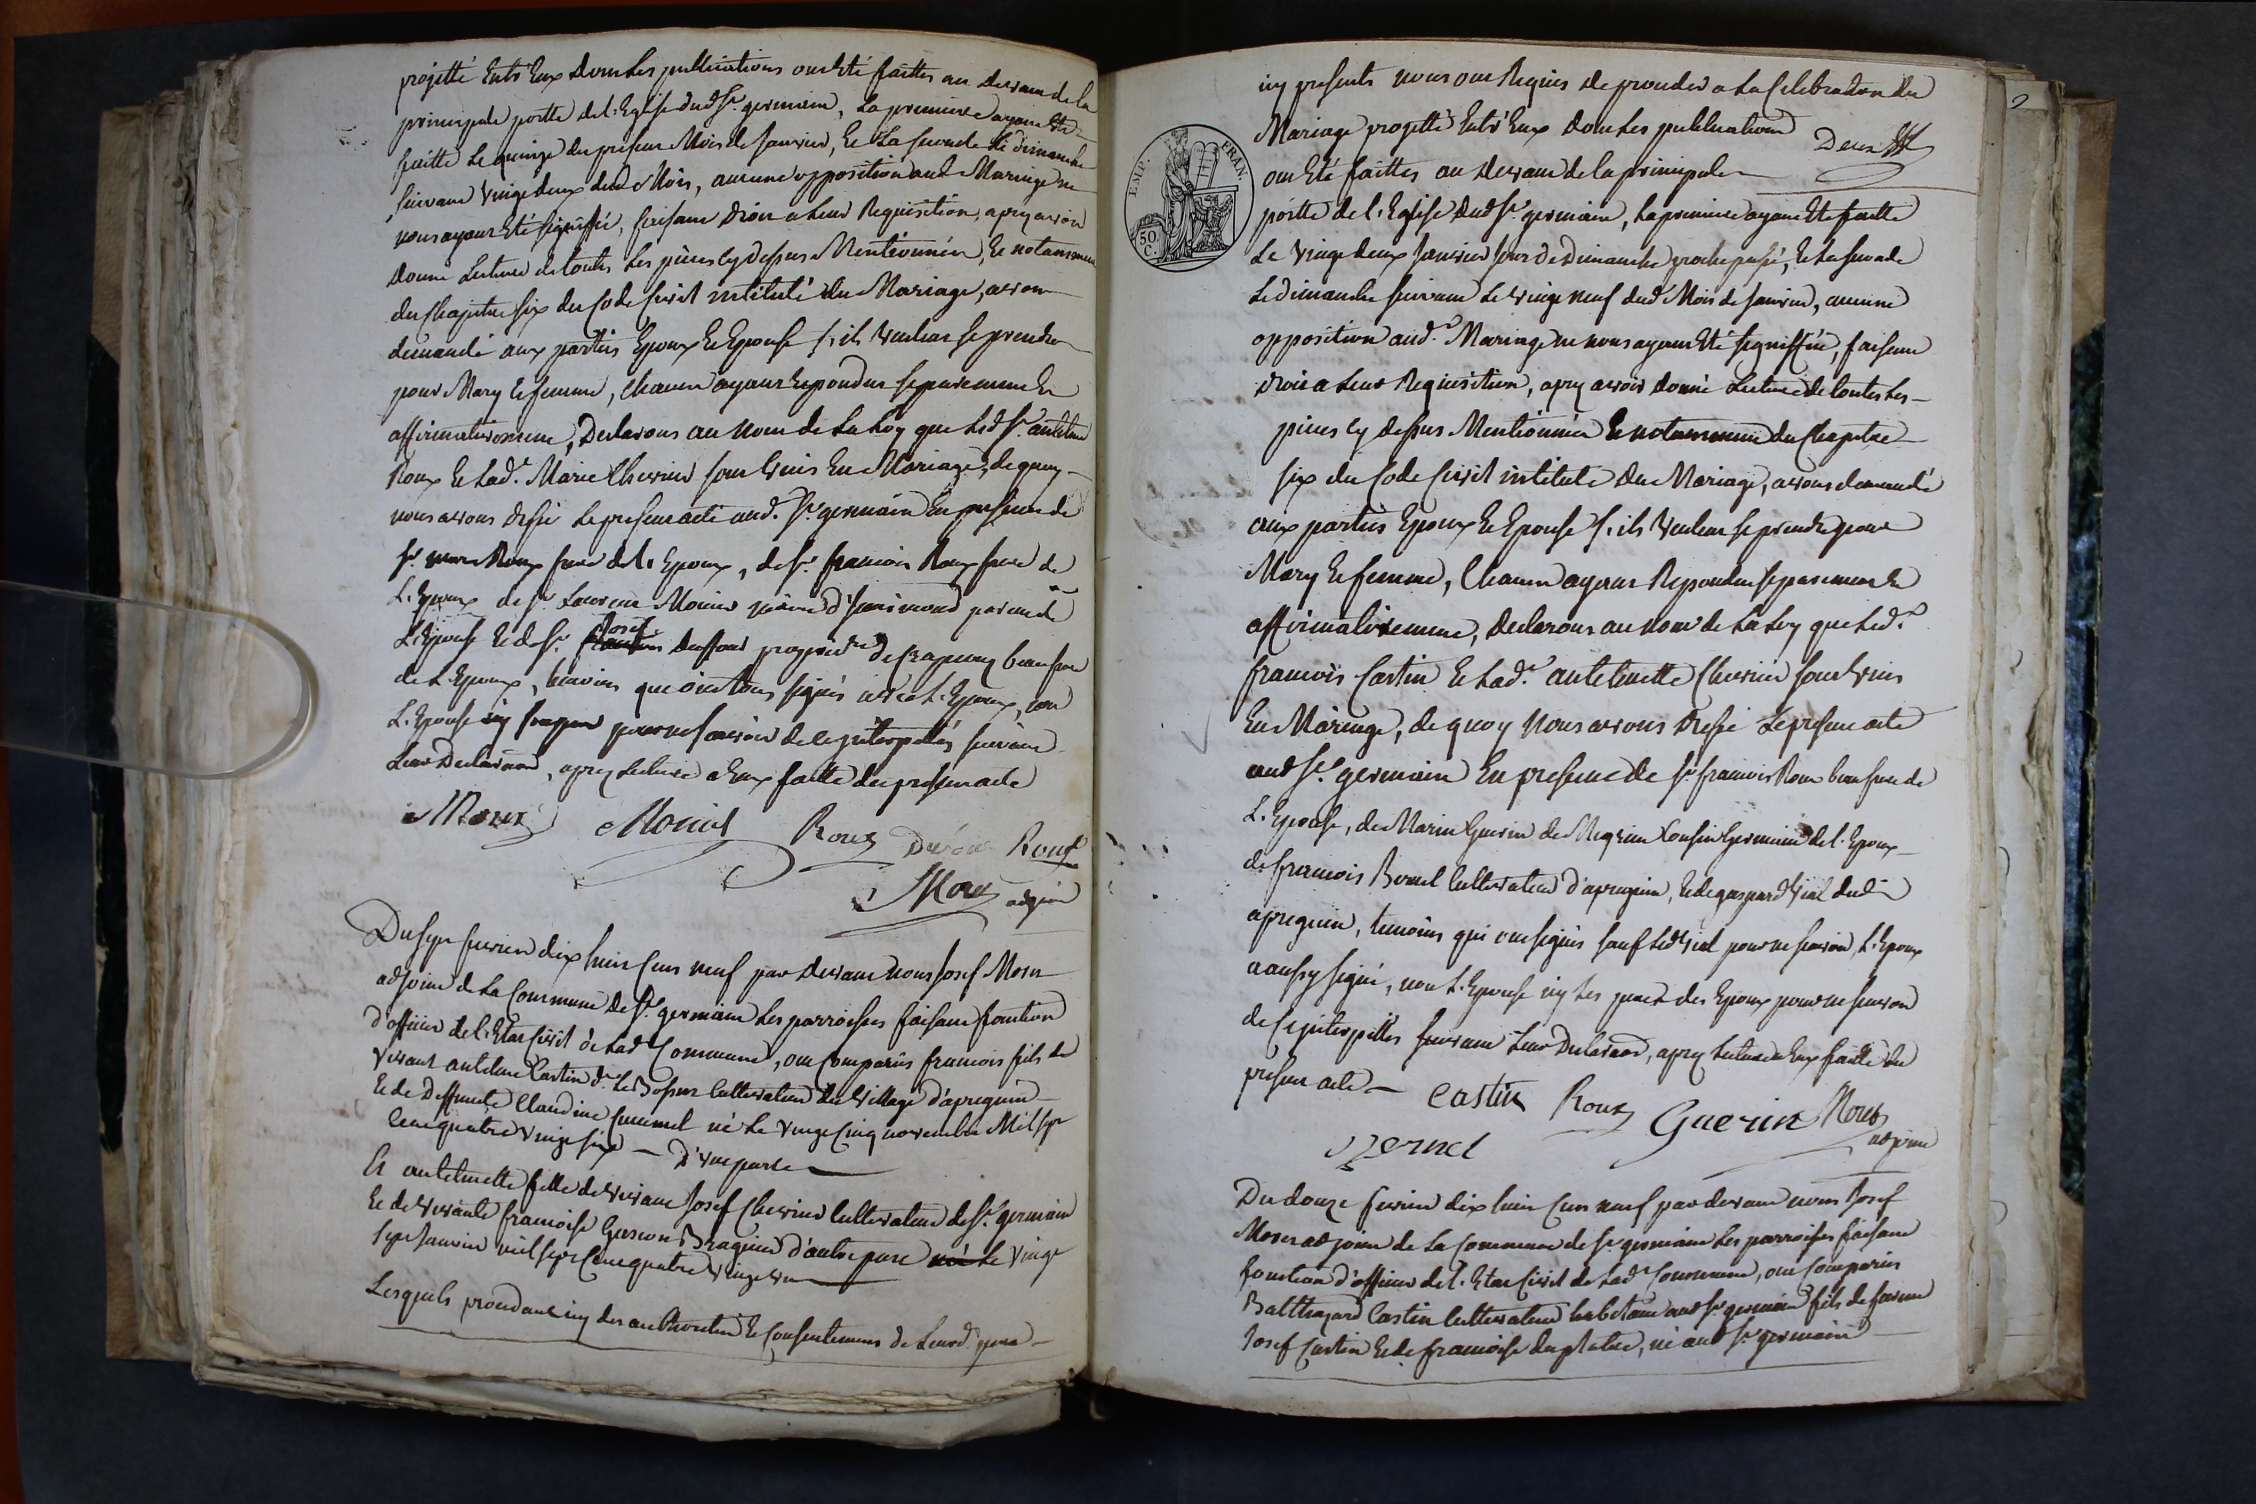 projetté Entr'Eux dont les publications ont Eté faittes au devant de la
principale portte de l'Eglise dud St germain, La premiere ayant Eté
faitte Le quinze du present Mois de Janvier, Et La seconde Le dimanche
suivant vingt deux dud Mois, aucune opposition aud Mariage ne
nous ayant Eté signiffié, faisant droit a Leur Requisition, apres avoir
donné Lecture de touttes Les pièces cy dessus Mentionnées, Et notamment
du Chapitre six du Code Civil intitulé du Mariage, avons
demandé aux parties Epoux Et Epouse s'ils veulent se prendre
pour Mary Et femme, Chacun ayant Repondus separement Et
affirmativement, Declarons au nom de La Loy que Led Sr. antelme
Roux Et Lad.e Marie Chevrier sont Unis En Mariage, de quoy
nous avons dressé Le present acte aud. St germain En presence de
Sr. Roux frere de L'Epoux, de Sr. francois Roux frere de
L'Epoux de Sr. Laurent Monier parent de
L'Epouse Et de Sr. Josef propriet.re beaufrere
de L'Epoux, temoins que ont tous signés avec L'Epoux, non
L'Epouse ny pour ne scavoir de ce interpellés suivant
Leur Declaration, apres Lecture a Eux faitte du present acte
Roux Monier Roux Roux
Morex adjoint
Du sept fevrier dix huit Cent neuf par devant nous Josef Morex
adjoint de La Commune de St. germain Les parroisses faisant fonction
d'officier de L'Etat Civil de Lad.e Commune, ont Comparus francois fils de
vivant antelme Castin d.t Le Bossu Cultivateur du village d'apregnin
Et de Deffuncte Claudine né Le vingt Cinq novembre Mil sept
Cent quatre vingt six — D'une part
Et antelmette fille de vivant Josef Chevrier Cultivateur de St. germain
Et de vivante francoise d'autre part née Le vingt
sept Janvier mil sept Cent quatre vingt un
Lesquels procedant icy des authorités Et Consentement de Leurd. pere
icy presents nous ont Requis de proceder a La Celebration du
Mariage projetté Entr'Eux dont Les publications
EMP. FRAN.
50 C.
Deux
2
ont Eté faittes au devant de la principale
portte de l'Eglise dud St. germain, La premiere ayant Eté faitte
Le vingt deux Janvier jour de Dimanche proche passé, Et La seconde
Le dimanche suivant Le vingt neuf dud Mois de Janvier, aucune
opposition aud.t Mariage ne nous ayant Eté signiffiée, faisant
droit a Leur Requisition, apres avoir donné Lecture de touttes Les
pieces cy dessus Mentionnées Et notamment du Chapitre
six du Code Civil intitulé du Mariage, avons demandé
aux parties Epoux Et Epouse s'ils veulent se prendre pour
Mary Et femme, Chacun ayant Repondu separement Et
affirmativement, Declarons au nom de La Loy que Led.t
francois Castin Et Lad.e antelmette Chevrier sont Unis
En Mariage, de quoy Nous avons dressé Le present acte
aud St. germain En presence de Sr francois Roux beaufrere de
L'Epouse, de Marin Guerin de Cousin Germain de L'Epoux
de francois Cultivateur d'apregnin, Et de gaspard Vial dud
apregnin, temoins qui ont signés sauf Led Vial pour ne scavoir, L'Epoux
a aussy signé, non L'Epouse ny Les peres des Epoux pour ne scavoir
de ce interpellés suivant Leur Declaration, apres Lecture a Eux faitte du
present acte — Castin Roux Guerin Morex
adjoint
Du douze fevrier dix huit Cent neuf par devant nous Josef
Morex adjoint de La Commune de St germain Les parroisses faisant
fonction d'officier de L'Etat Civil de Lad.e Commune, ont Comparus
Balthazard Castin Cultivateur habitant aud St. germain fils de
Josef Castin Et de francoise duplatre, né aud St. germain